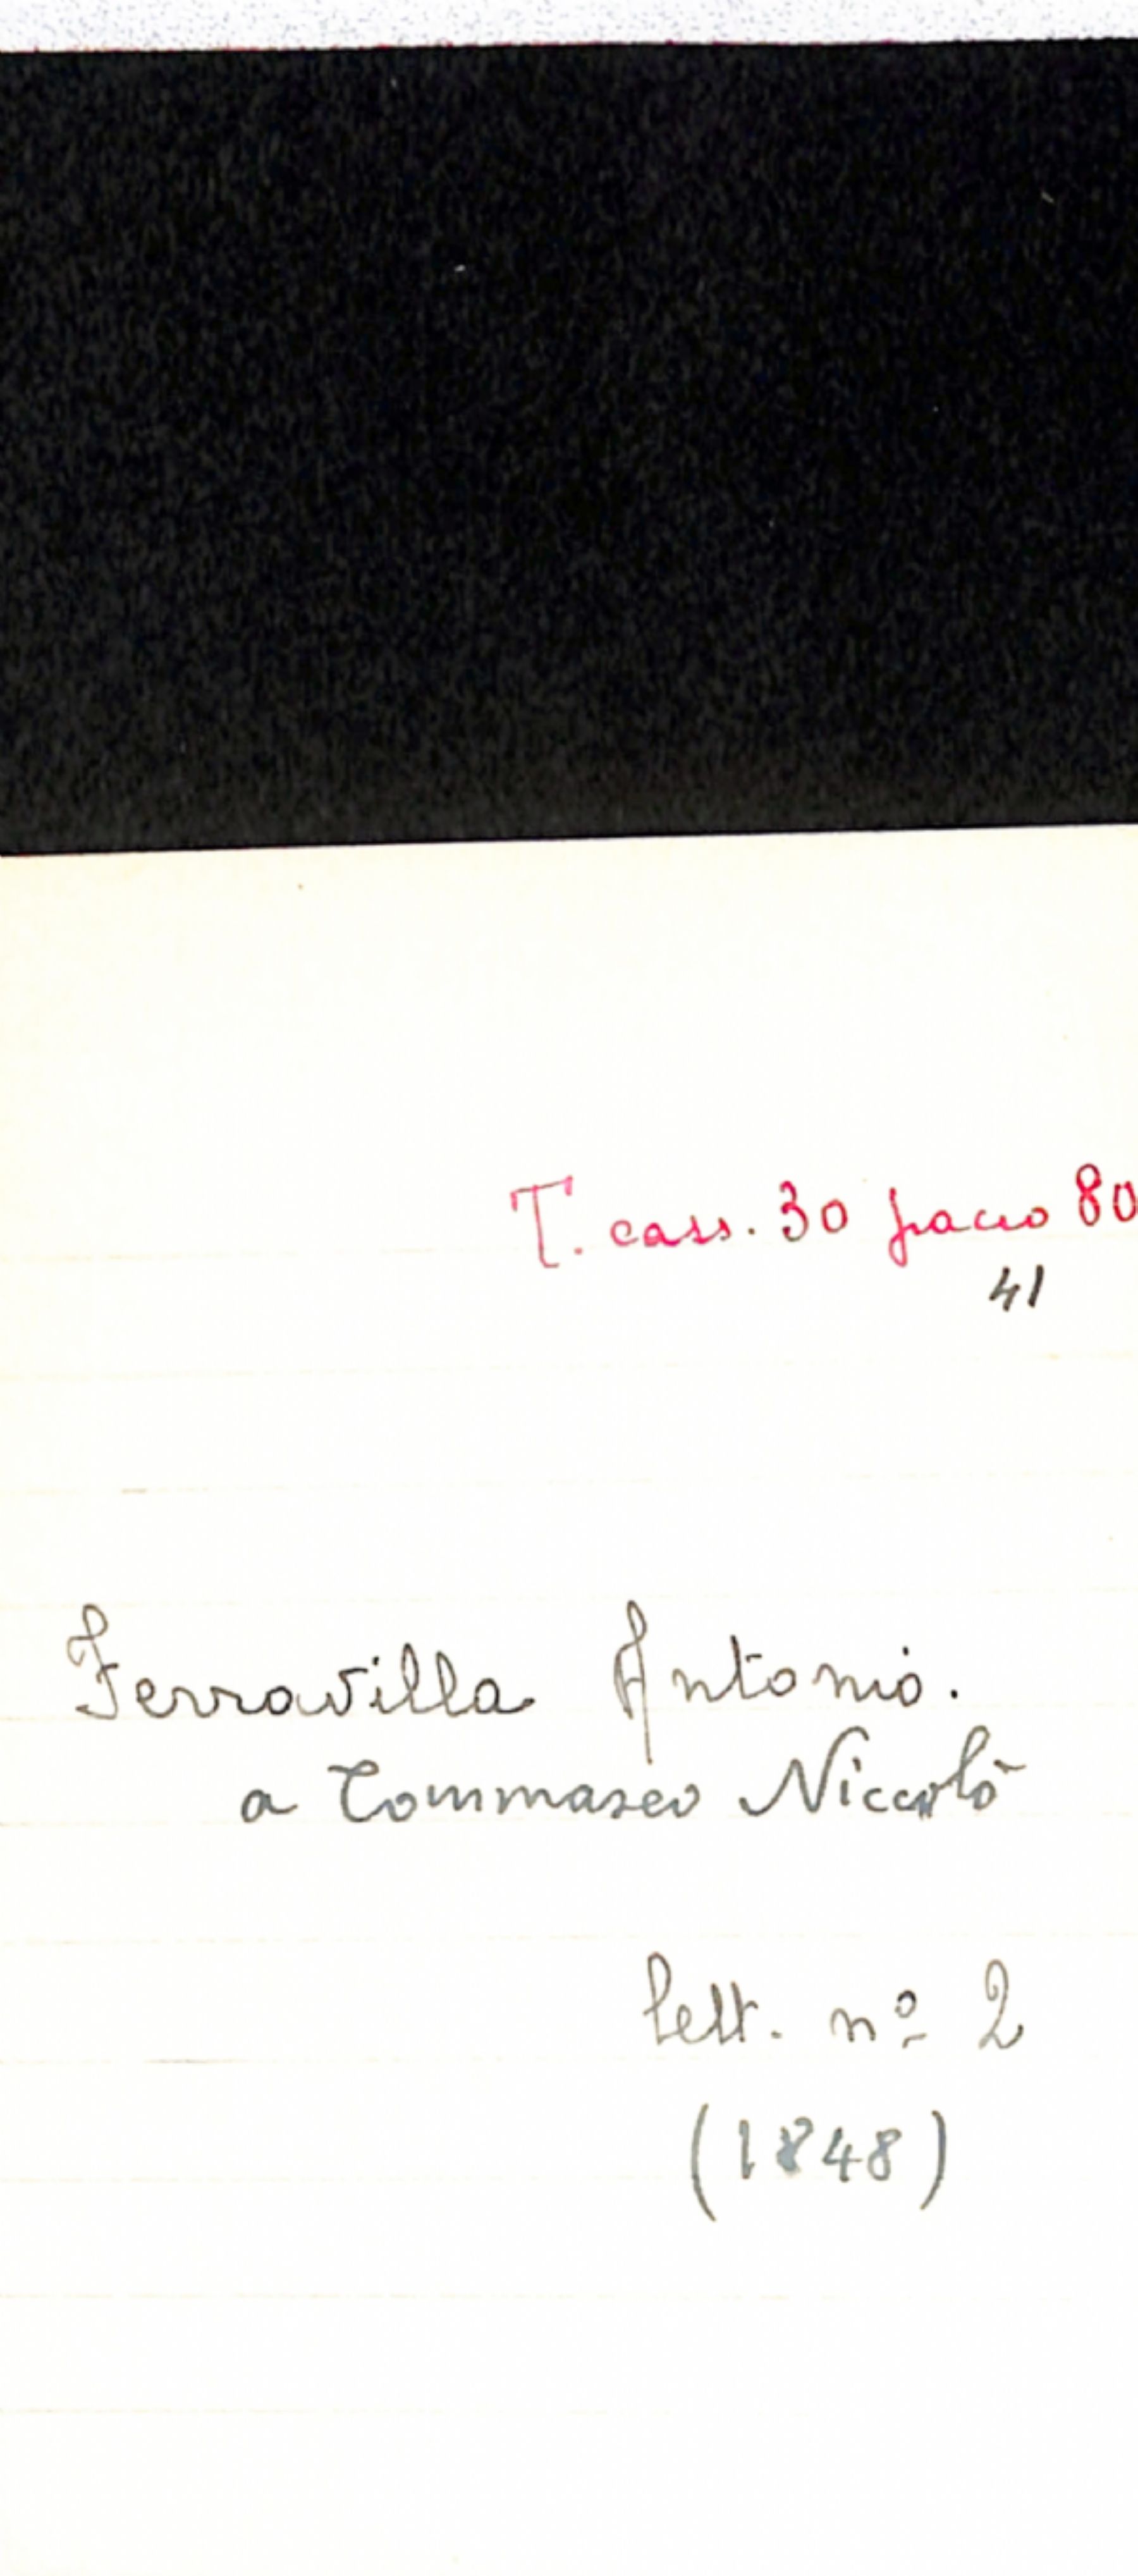 T. cass. 30 pacco 80
41
Ferravilla Antonio.
a Tommaseo Niccolò
lett. nº 2
(1848)